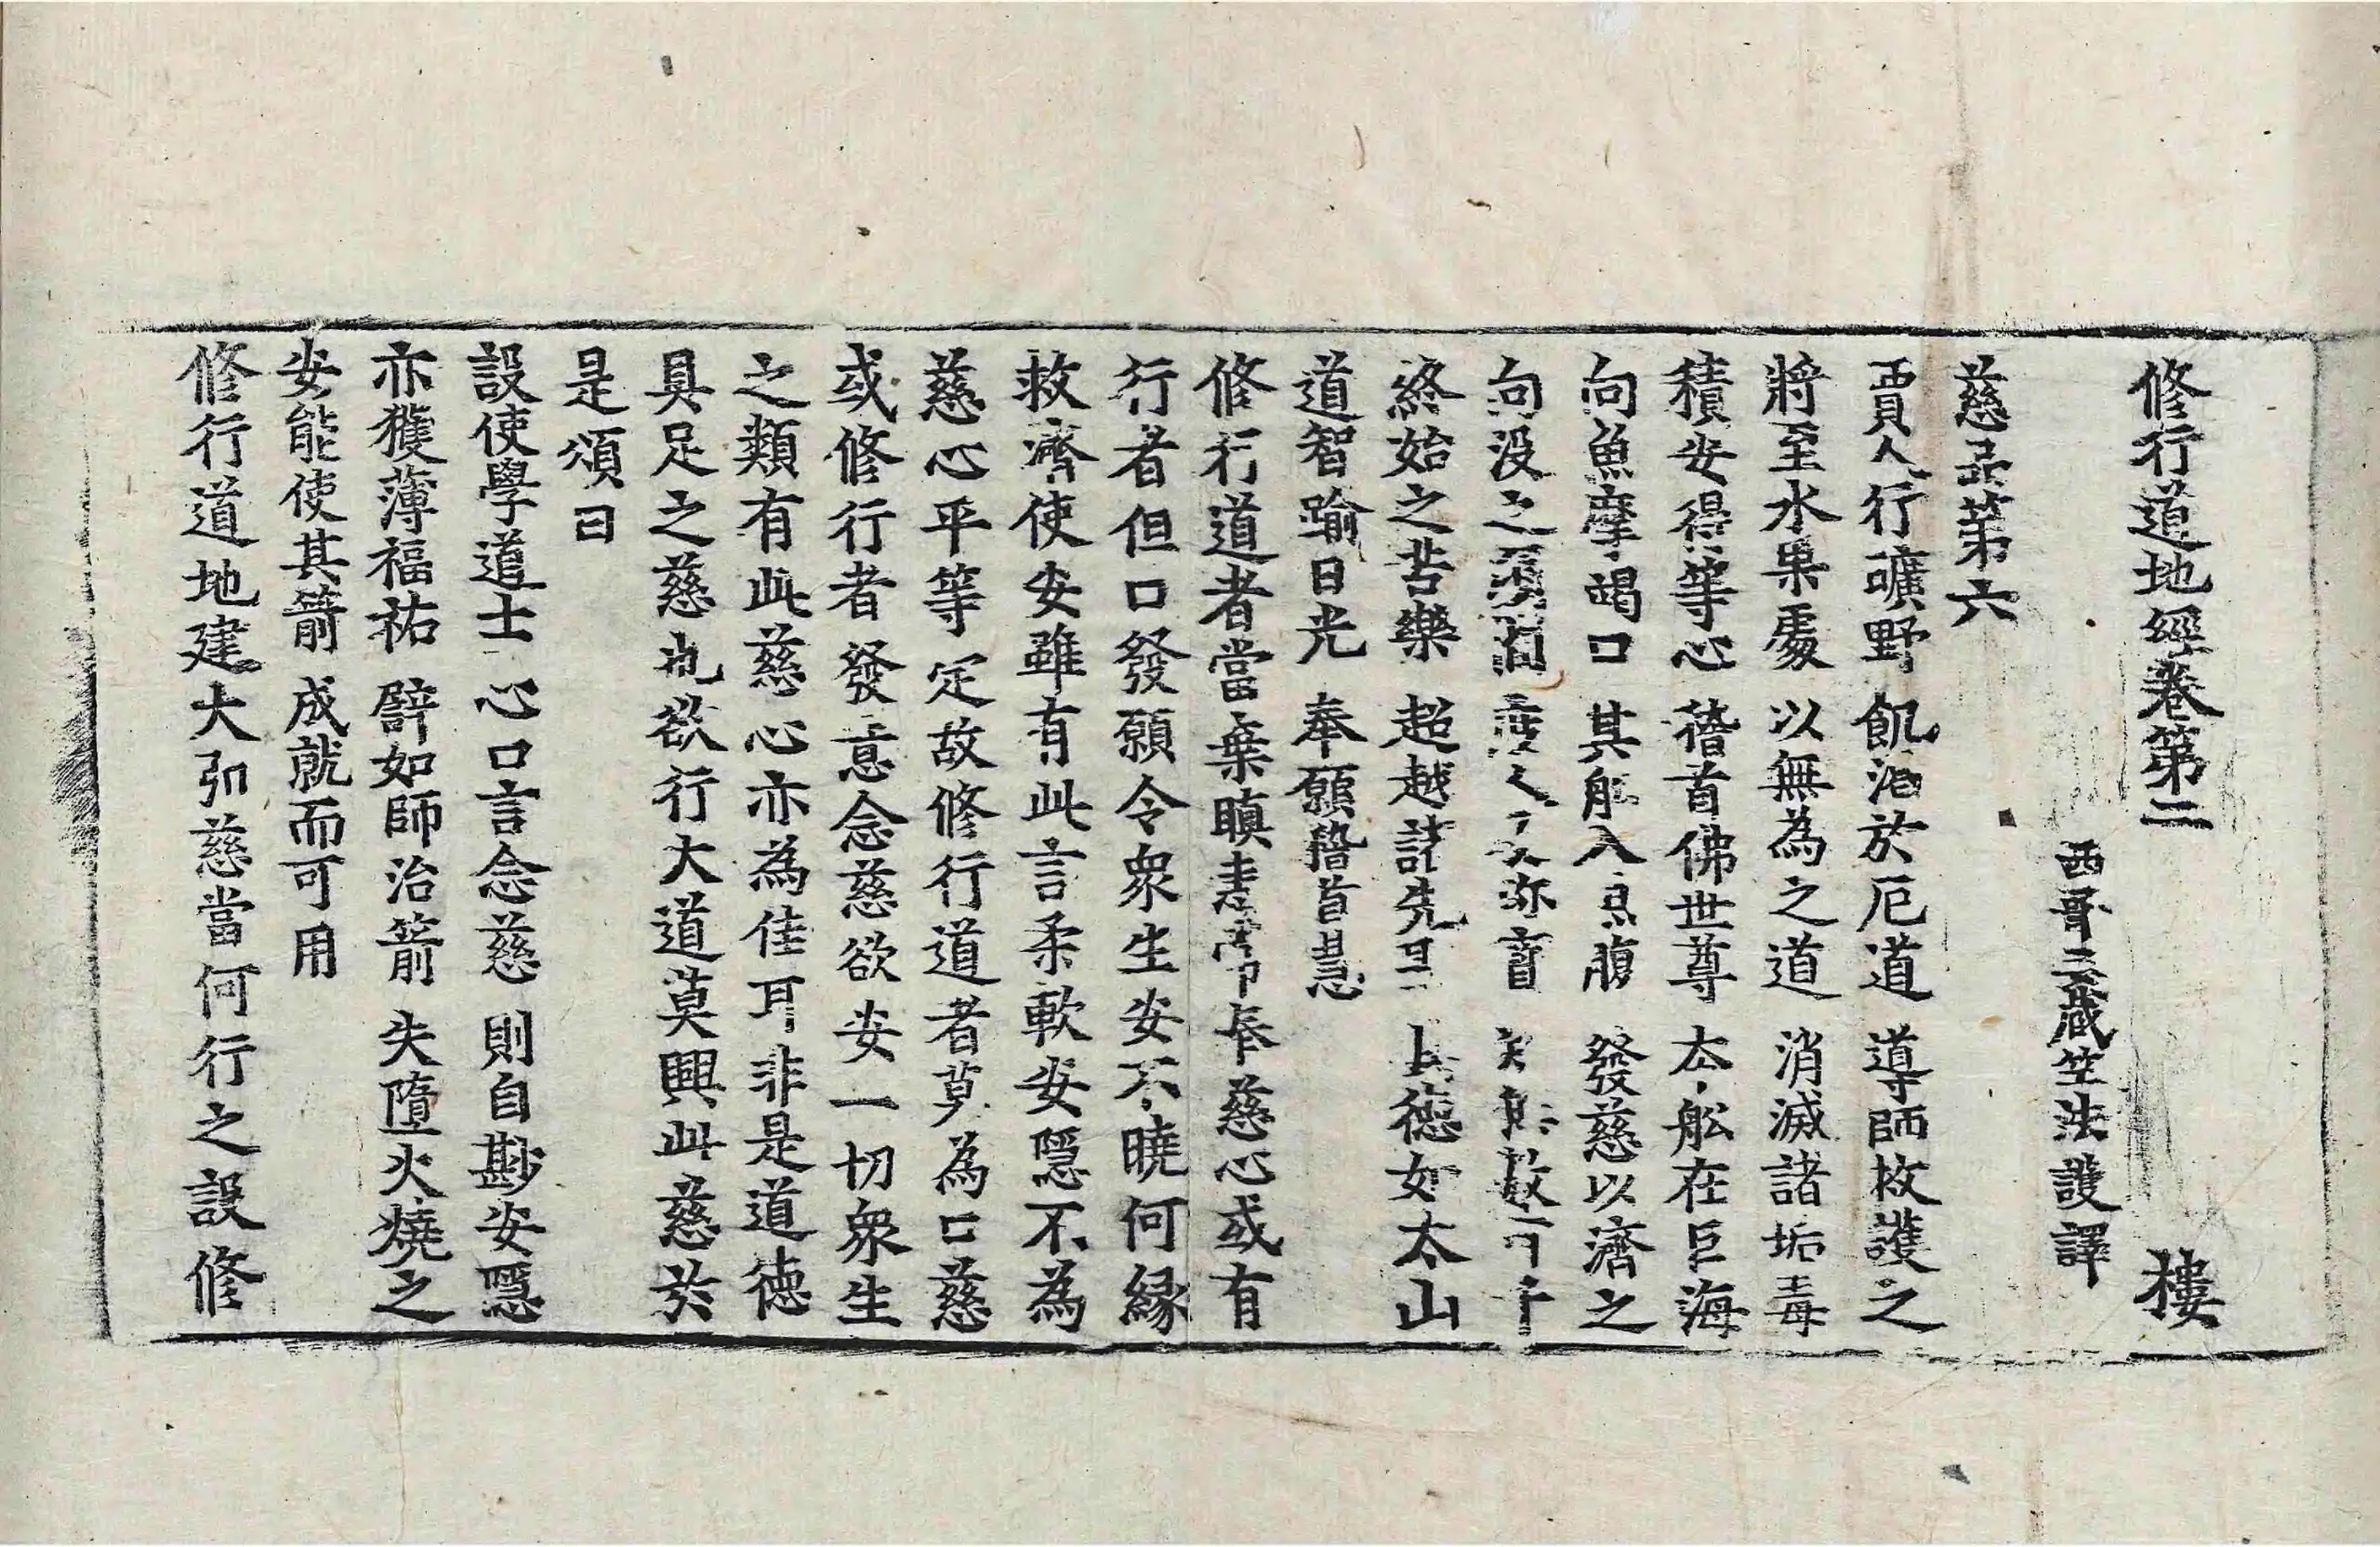 修行道地經卷第二 樓
西晉三藏竺法護譯
慈品第六
賈人行曠野 飢渴於厄道 導師救護之
將至水果處 以無為之道 消滅諸垢毒
積安得等心 稽首佛世尊 大船在巨海
向魚摩竭口 其船入魚腹 發慈以濟之
向沒之
終始之苦樂 超越諸先 上德如太山
道智踰日光 奉願稽首慧
修行道者當棄瞋恚常奉慈心或有
行者但口發願令衆生安不曉何緣
救濟使安雖有此言柔軟安隱不為
慈心平等定故修行道者莫為口慈
或修行者發意念慈欲安一切衆生
之類有此慈心亦為佳耳非是道德
具足之慈也欲行大道莫興此慈於
是頌曰
設使學道士 心口言念慈 則自尠安隱
亦獲薄福祐 譬如師治箭 失墮火燒之
安能使其箭 成就而可用
修行道地建大弘慈當何行之設修